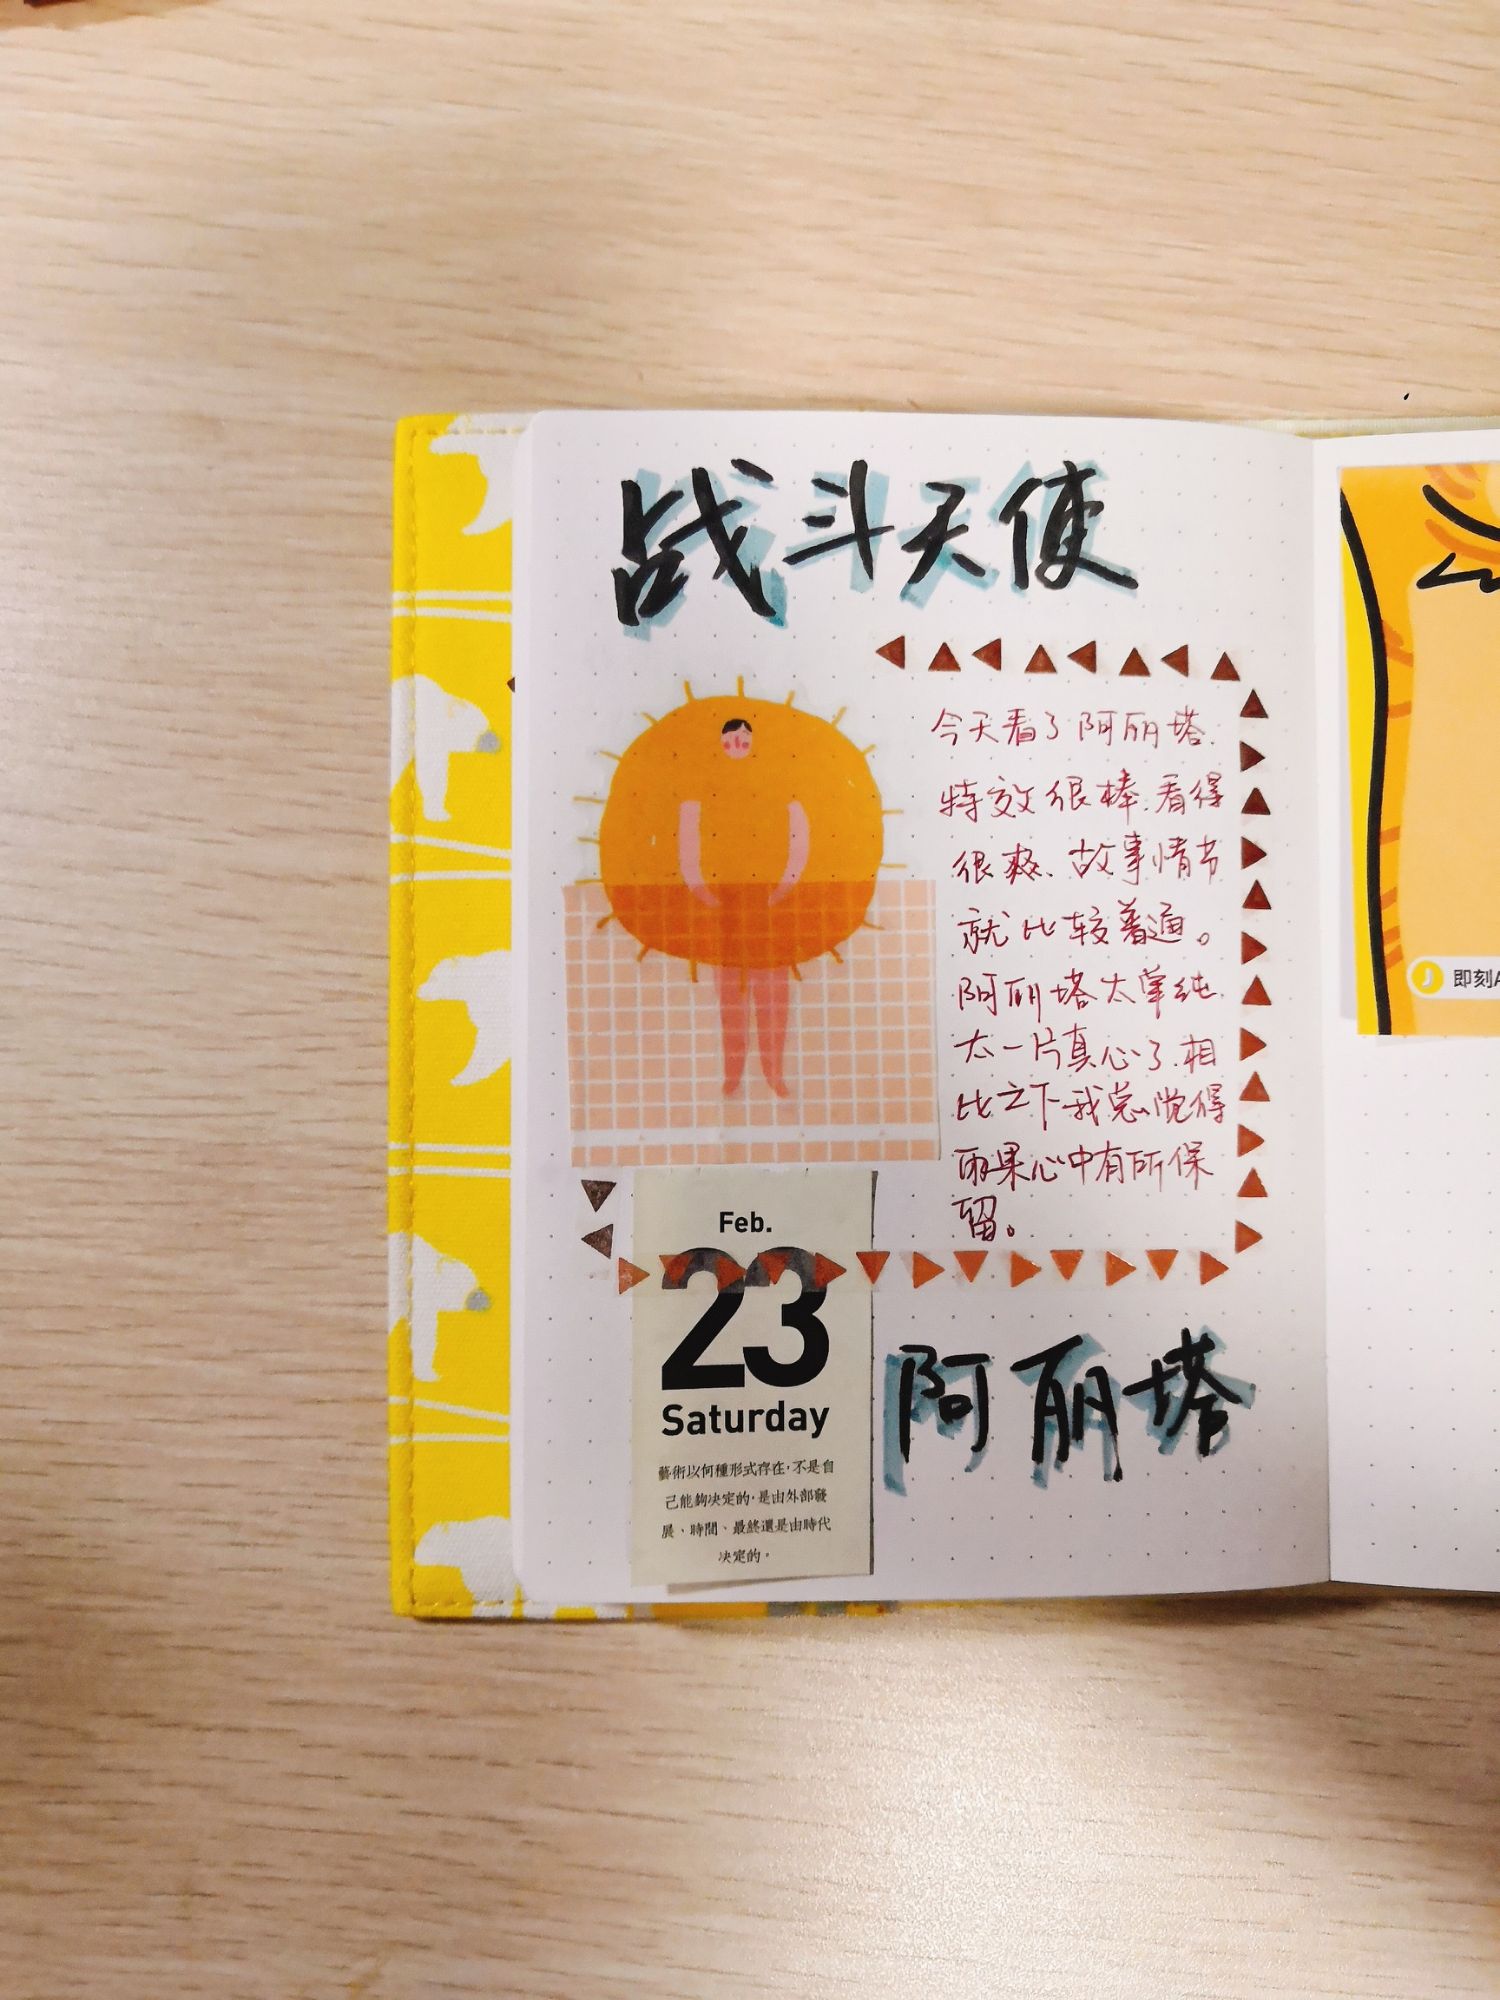 战斗天使
今天看了阿丽塔.
特效很棒.看得
很爽、故事情节
就比较普通。
阿丽塔太单纯.
太一片真心了.相
比之下我总觉得
雨果心中有所保
留。
Feb.
23
Saturday
藝術以何種形式存在，不是自
己能夠決定的，是由外部發
展、時間、最終還是由時代
決定的。
阿丽塔
即刻A